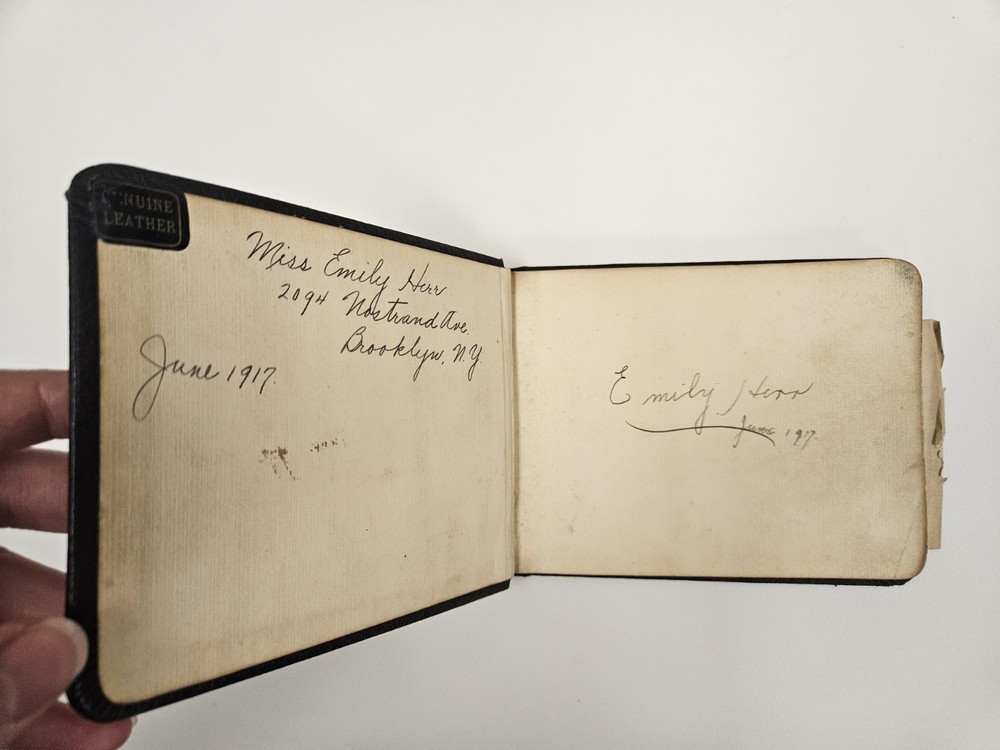 GENUINE
LEATHER
Miss Emily Herr
2094 Nostrand Ave.
Brooklyn, N.Y
June 1917.
Emily Herr
June 1917.